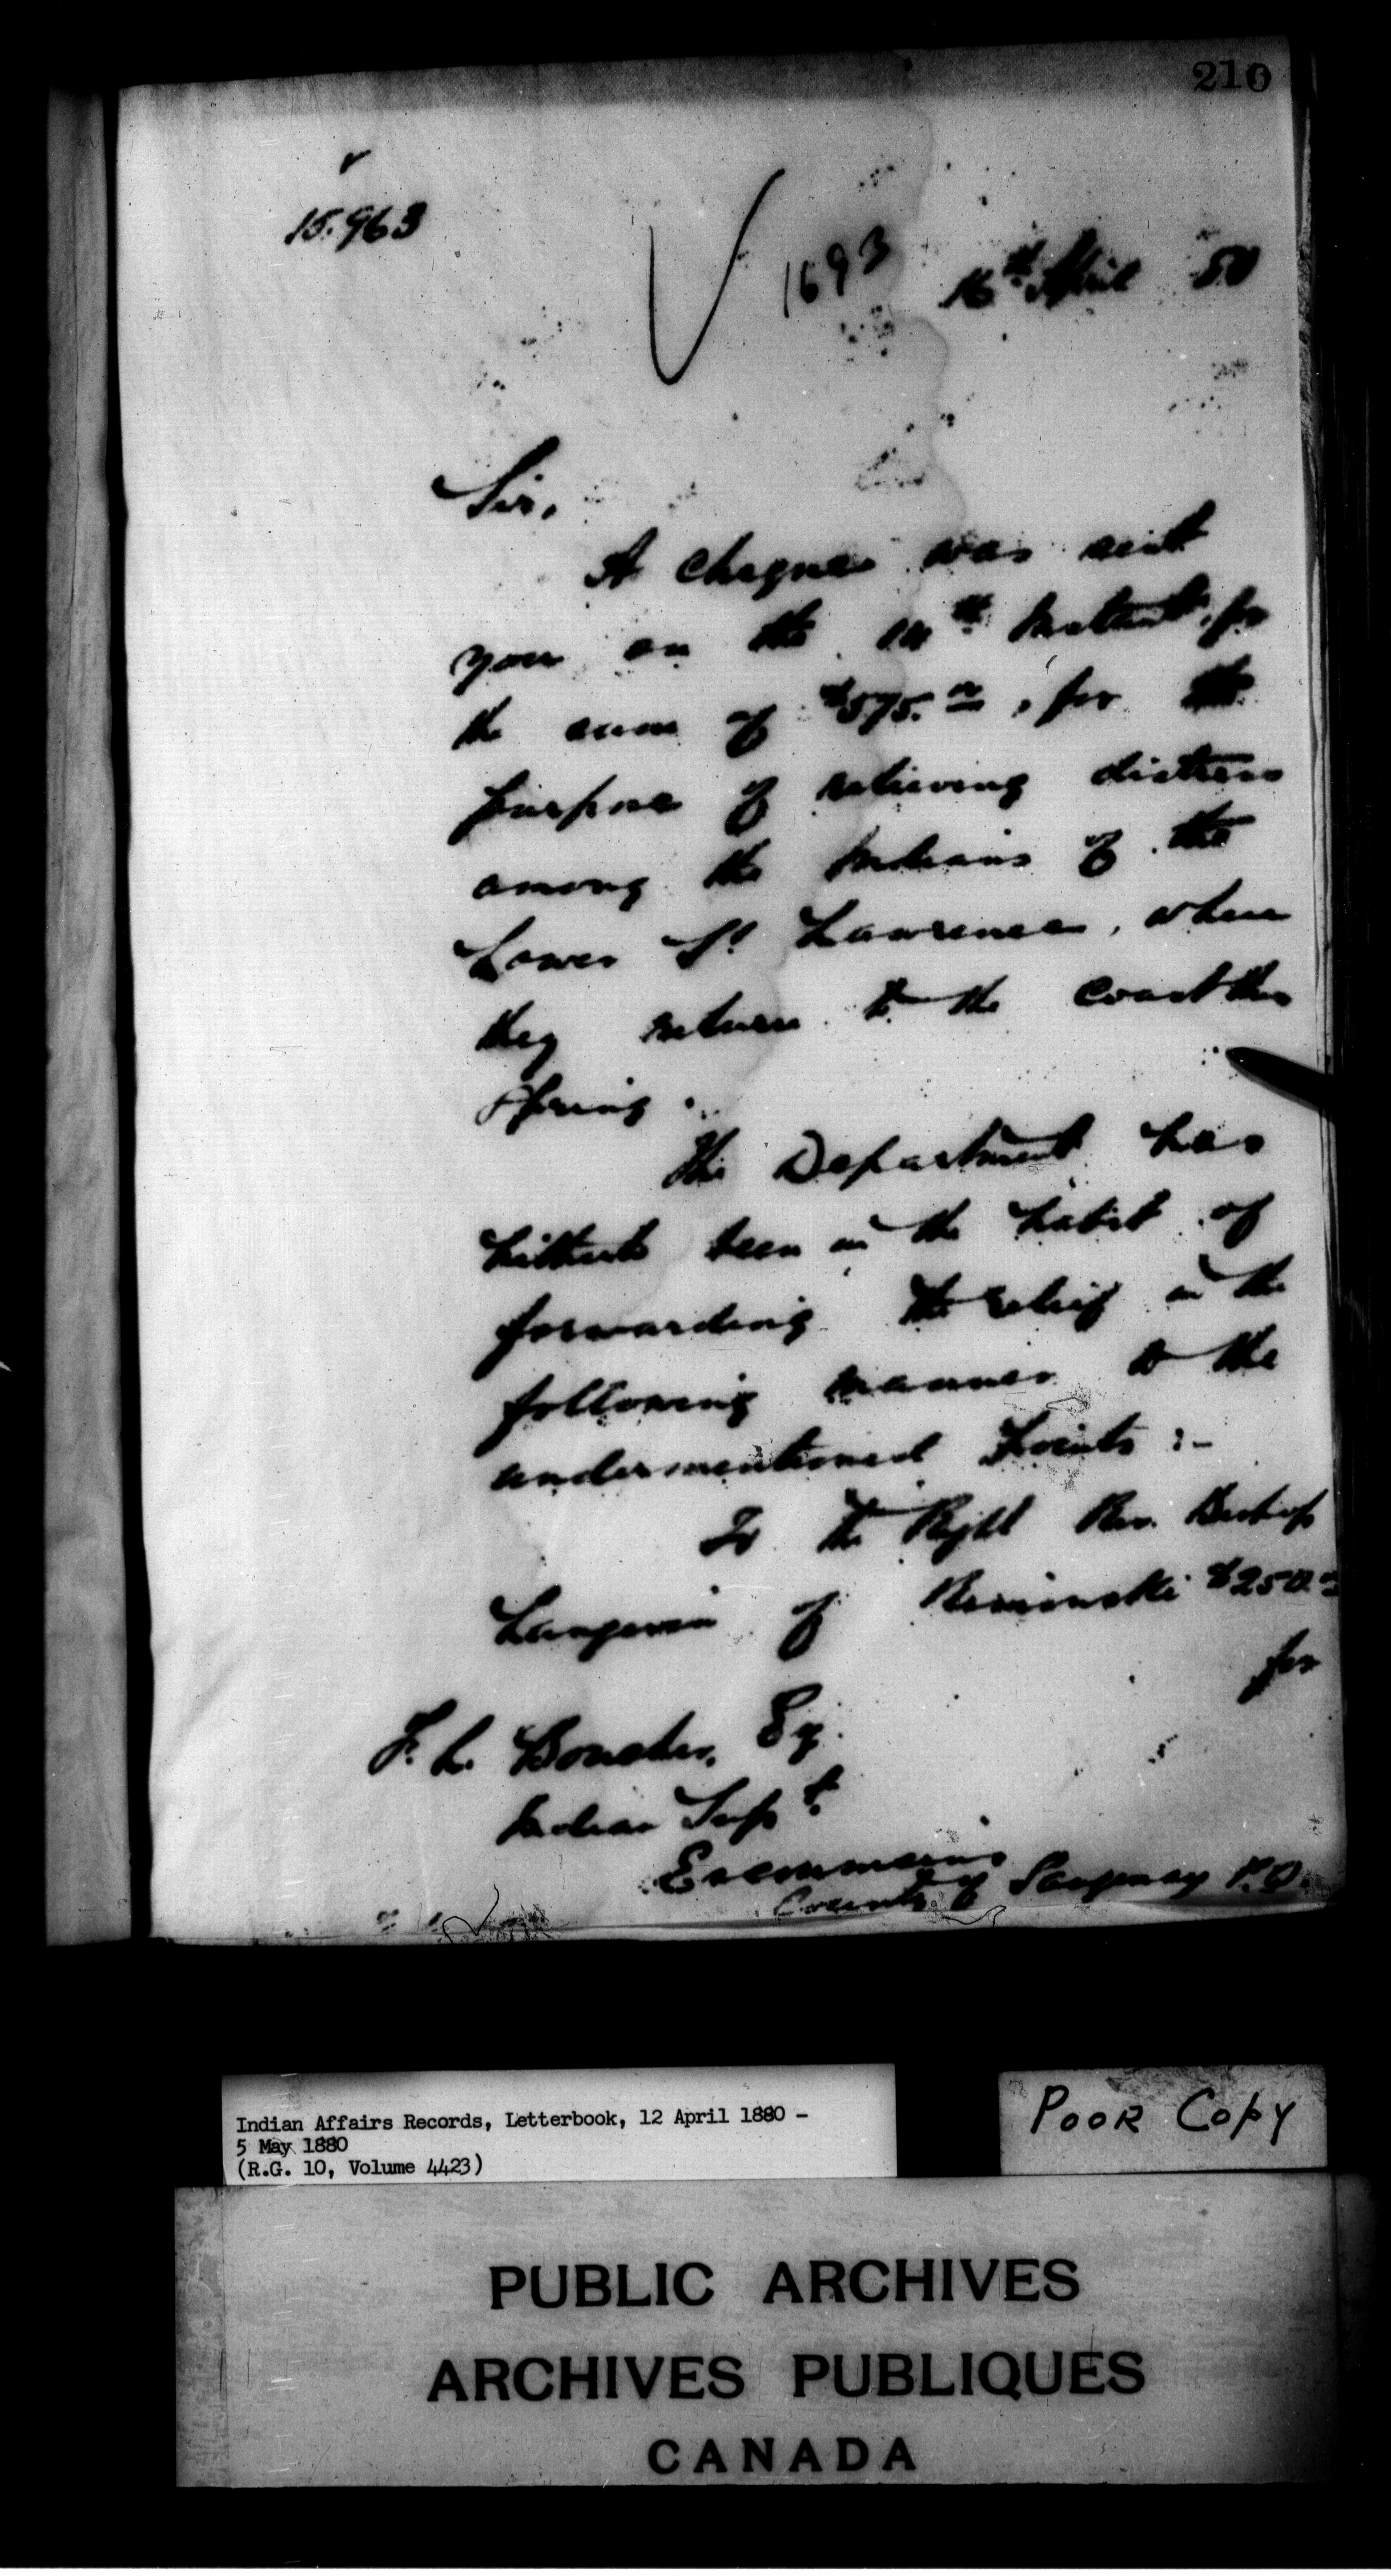 210
15.963
1693
16th April 80
Sir,
A cheque was sent
you on the 14th Instant, for
the sum of $575.00, for the
purpose of relieving distress
among the Indians of the
Lower St. Lawrence, when
they return to the coast this
Spring.
The Department has
hitherto been in the habit of
forwarding the relief in the
following manner to the
undermentioned points :-
To the Right Rev. Bishop
Langevin of Rimouski $250.00
for
F. L. Boucher, Esq.
Indian Supt.
Escoumains
County of Saguenay P.Q.
Indian Affairs Records, Letterbook, 12 April 1880 -
5 May 1880
(R.G. 10, Volume 4423)
POOR COPY
PUBLIC ARCHIVES
ARCHIVES PUBLIQUES
CANADA